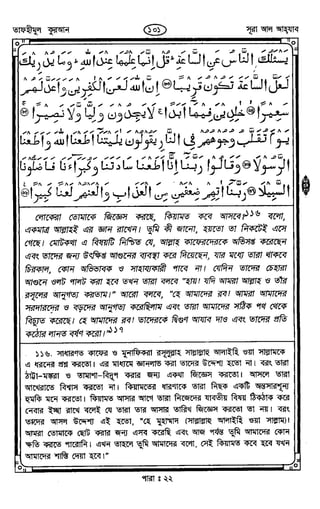 তাফহীমুল কুরআন
১০১
সূরা আল আহযাব
يَسْئَلُكَ النَّاسُ عَنِ السَّاعَةِ قُلْ إِنَّمَا عِلْمُهَا عِنْدَ اللهِ وَمَا يُدْرِيكَ
لَعَلَّ السَّاعَةَ تَكُونُ قَرِيبًا ۝ إِنَّ اللهَ لَعَنَ الْكٰفِرِينَ وَأَعَدَّ لَهُمْ
سَعِيرًا ۝ خٰلِدِينَ فِيهَا أَبَدًا لَا يَجِدُونَ وَلِيًّا وَّلَا نَصِيرًا ۝
يَوْمَ تُقَلَّبُ وُجُوهُهُمْ فِي النَّارِ يَقُولُونَ يٰلَيْتَنَا أَطَعْنَا اللهَ وَأَطَعْنَا
الرَّسُولَا ۝ وَقَالُوا رَبَّنَا إِنَّا أَطَعْنَا سَادَتَنَا وَكُبَرَاءَنَا فَأَضَلُّونَا
السَّبِيلَا ۝ رَبَّنَا آتِهِمْ ضِعْفَيْنِ مِنَ الْعَذَابِ وَالْعَنْهُمْ لَعْنًا كَبِيرًا ۝
লোকেরা তোমাকে জিজ্ঞেস করছে, কিয়ামত কবে আসবে?১১৬ বলো,
একমাত্র আল্লাহই এর জ্ঞান রাখেন। তুমি কী জানো, হয়তো তা নিকটেই এসে
গেছে। মোটকথা এ বিষয়টি নিশ্চিত যে, আল্লাহ কাফেরদেরকে অভিসপ্ত করেছেন
এবং তাদের জন্য উৎক্ষিপ্ত আগুনের ব্যবস্থা করে দিয়েছেন, যার মধ্যে তারা থাকবে
চিরকাল, কোন অভিভাবক ও সাহায্যকারী পাবে না। যেদিন তাদের চেহারা
আগুনে ওলট পালট করা হবে তখন তারা বলবে “হায়! যদি আমরা আল্লাহ ও তাঁর
রসূলের আনুগত্য করতাম।” আরো বলবে, “হে আমাদের রব! আমরা আমাদের
সরদারদের ও বড়দের আনুগত্য করেছিলাম এবং তারা আমাদের সঠিক পথ থেকে
বিচ্যুত করেছে। হে আমাদের রব! তাদেরকে দ্বিগুণ আযাব দাও এবং তাদের প্রতি
কঠোর লানত বর্ষণ করো।”১১৭
১১৬. সাধারণত কাফের ও মুনাফিকরা রসূলুল্লাহ সাল্লাল্লাহু আলাইহি ওয়া সাল্লামকে
এ ধরনের প্রশ্ন করতো। এর মাধ্যমে জ্ঞানলাভ করা তাদের উদ্দেশ্য হতো না। বরং তারা
ঠাট্টা-মস্করা ও তামাশা-বিদ্রূপ করার জন্য একথা জিজ্ঞেস করতো। আসলে তারা
আখেরাতে বিশ্বাস করতো না। কিয়ামতের ধারণাকে তারা নিছক একটি অন্তসারশূন্য
হুমকি মনে করতো। কিয়ামত আসার আগে তারা নিজেদের যাবতীয় বিষয় ঠিকঠাক করে
নেবার ইচ্ছা রাখে বলেই যে তারা তার আসার তারিখ জিজ্ঞেস করতো তা নয়। বরং
তাদের আসল উদ্দেশ্য এই হতো, “হে মুহাম্মাদ (সাল্লাল্লাহু আলাইহি ওয়া সাল্লাম)!
আমরা তোমাকে ছোট করার জন্য এসব করেছি এবং আজ পর্যন্ত তুমি আমাদের কোন
ক্ষতি করতে পারোনি। এখন তাহলে তুমি আমাদের বলো, সেই কিয়ামত কবে হবে যখন
আমাদের শাস্তি দেয়া হবে।”
পারা : ২২